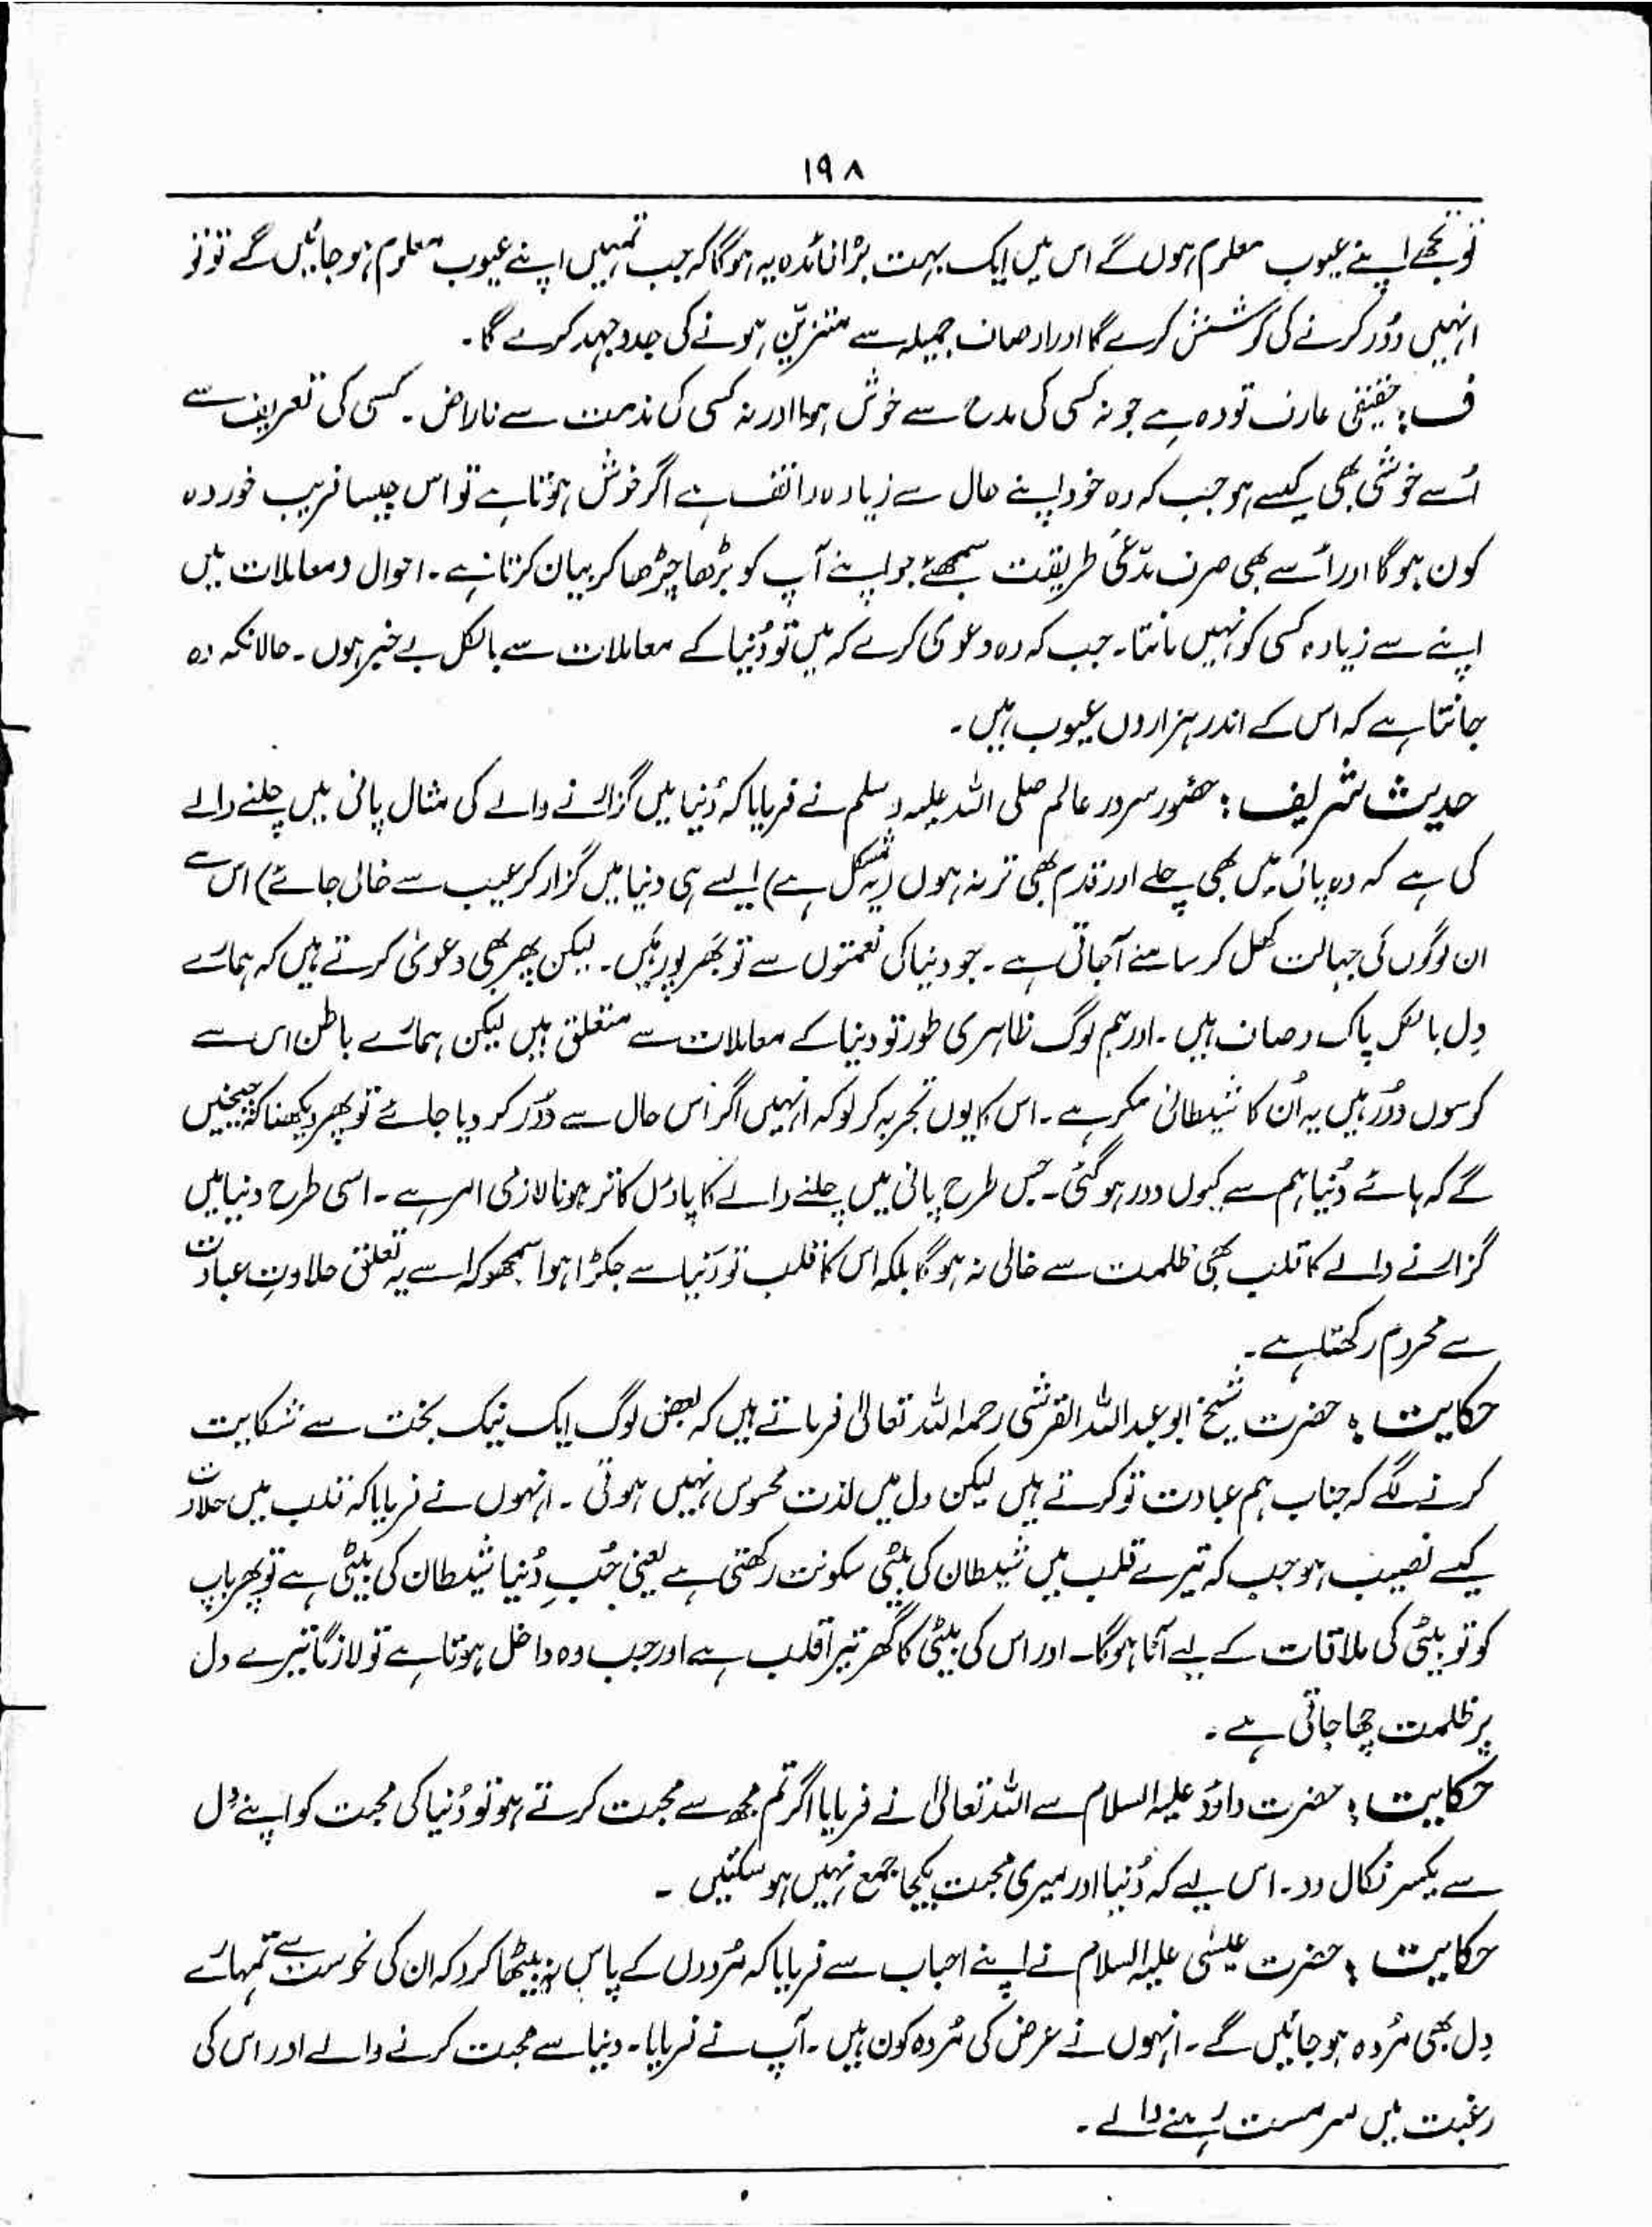 ۱۹۸
تو تجھے اپنے عیوب معلوم ہوں گے اس میں ایک بہت بڑا فائدہ یہ ہوگا کہ جب تمہیں اپنے عیوب معلوم ہو جائیں گے تو تو
انہیں دُور کرنے کی کوشش کرے گا اور اوصاف جمیلہ سے متزیّن ہونے کی جدوجہد کرے گا۔
ف: حقیقی عارف تو وہ ہے جو نہ کسی کی مدح سے خوش ہوا اور نہ کسی کی مذمت سے ناراض۔ کسی کی تعریف سے
اُسے خوشی بھی کیسے ہو جب کہ وہ خود اپنے حال سے زیادہ واقف ہے اگر خوش ہوتا ہے تو اس جیسا فریب خوردہ
کون ہوگا اور اُسے بھی صرف مدّعیٔ طریقت سمجھئے جو اپنے آپ کو بڑھا چڑھا کر بیان کرتا ہے۔ احوال و معاملات میں
اپنے سے زیادہ کسی کو نہیں مانتا۔ جب کہ وہ دعویٰ کرے کہ میں تو دُنیا کے معاملات سے بالکل بے خبر ہوں۔ حالانکہ وہ
جانتا ہے کہ اس کے اندر ہزاروں عیوب ہیں۔
حدیث شریف: حضور سرور عالم صلی اللہ علیہ وسلم نے فرمایا کہ دُنیا میں گزارنے والے کی مثال پانی میں چلنے والے
کی ہے کہ وہ پانی میں بھی چلے اور قدم بھی تر نہ ہوں (یہ مشکل ہے) ایسے ہی دنیا میں گزار کر عیب سے خالی جائے) اس سے
ان لوگوں کی جہالت کھل کر سامنے آجاتی ہے۔ جو دنیا کی نعمتوں سے تو بھرپور ہیں۔ لیکن پھر بھی دعویٰ کرتے ہیں کہ ہمارے
دِل بالکل پاک و صاف ہیں۔ اور ہم لوگ ظاہری طور تو دنیا کے معاملات سے متعلق ہیں لیکن ہمارے باطن اس سے
کوسوں دُور ہیں یہ اُن کا شیطانی مکر ہے۔ اس کا یوں تجربہ کر لو کہ انہیں اگر اس حال سے دُور کر دیا جائے تو پھر دیکھنا کہ چیخیں
گے کہ ہائے دُنیا ہم سے کیوں دور ہو گئی۔ جس طرح پانی میں چلنے والے کا پاؤں کا تر ہونا لازمی امر ہے۔ اسی طرح دنیا میں
گزارنے والے کا قلب بھی ظلمت سے خالی نہ ہوگا بلکہ اس کا قلب تو دُنیا سے جکڑا ہوا سمجھو کہ اسے یہ تعلق حلاوتِ عبادت
سے محروم رکھتا ہے۔
حکایت: حضرت شیخ ابو عبداللہ القرشی رحمہ اللہ تعالیٰ فرماتے ہیں کہ بعض لوگ ایک نیک بخت سے شکایت
کرنے لگے کہ جناب ہم عبادت تو کرتے ہیں لیکن دل میں لذت محسوس نہیں ہوتی۔ انہوں نے فرمایا کہ قلب میں حلاوت
کیسے نصیب ہو جب کہ تیرے قلب میں شیطان کی بیٹی سکونت رکھتی ہے یعنی حُبِ دُنیا شیطان کی بیٹی ہے تو پھر باپ
کو تو بیٹی کی ملاقات کے لیے آنا ہوگا۔ اور اس کی بیٹی کا گھر تیرا قلب ہے اور جب وہ داخل ہوتا ہے تو لازماً تیرے دل
پر ظلمت چھا جاتی ہے۔
حکایت: حضرت داؤد علیہ السلام سے اللہ تعالیٰ نے فرمایا اگر تم مجھ سے محبت کرتے ہو تو دُنیا کی محبت کو اپنے دِل
سے یکسر نکال دو۔ اس لیے کہ دُنیا اور میری محبت یکجا جمع نہیں ہو سکتیں۔
حکایت: حضرت عیسٰی علیہ السلام نے اپنے احباب سے فرمایا کہ مُردوں کے پاس نہ بیٹھا کرو کہ ان کی نحوست سے تمہارے
دِل بھی مُردہ ہو جائیں گے۔ انہوں نے عرض کی مُردہ کون ہیں۔ آپ نے فرمایا۔ دنیا سے محبت کرنے والے اور اس کی
رغبت میں سرمست رہنے والے۔